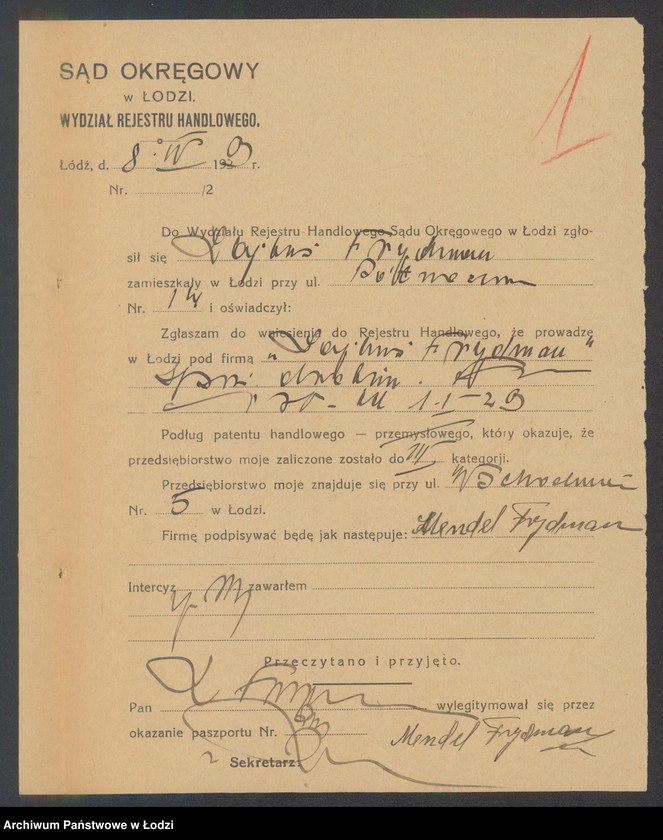 SĄD OKRĘGOWY
w ŁODZI.
WYDZIAŁ REJESTRU HANDLOWEGO.
1
Łódź, d. 8 IV 1929 r.
Nr. /2
Do Wydziału Rejestru Handlowego Sądu Okręgowego w Łodzi zgło-
sił się Frydman
zamieszkały w Łodzi przy ul.
Nr. 14 i oświadczył:
Zgłaszam do wniesienia do Rejestru Handlowego, że prowadzę
w Łodzi pod firmą „ Frydman"
1-I-29
Podług patentu handlowego — przemysłowego, który okazuje, że
przedsiębiorstwo moje zaliczone zostało do III kategorji.
Przedsiębiorstwo moje znajduje się przy ul. Wschodniej
Nr. 5 w Łodzi.
Firmę podpisywać będę jak następuje: Mendel Frydman
Intercyz zawarłem
Przeczytano i przyjęto.
Pan wylegitymował się przez
okazanie paszportu Nr. Mendel Frydman
Sekretarz:
Archiwum Państwowe w Łodzi